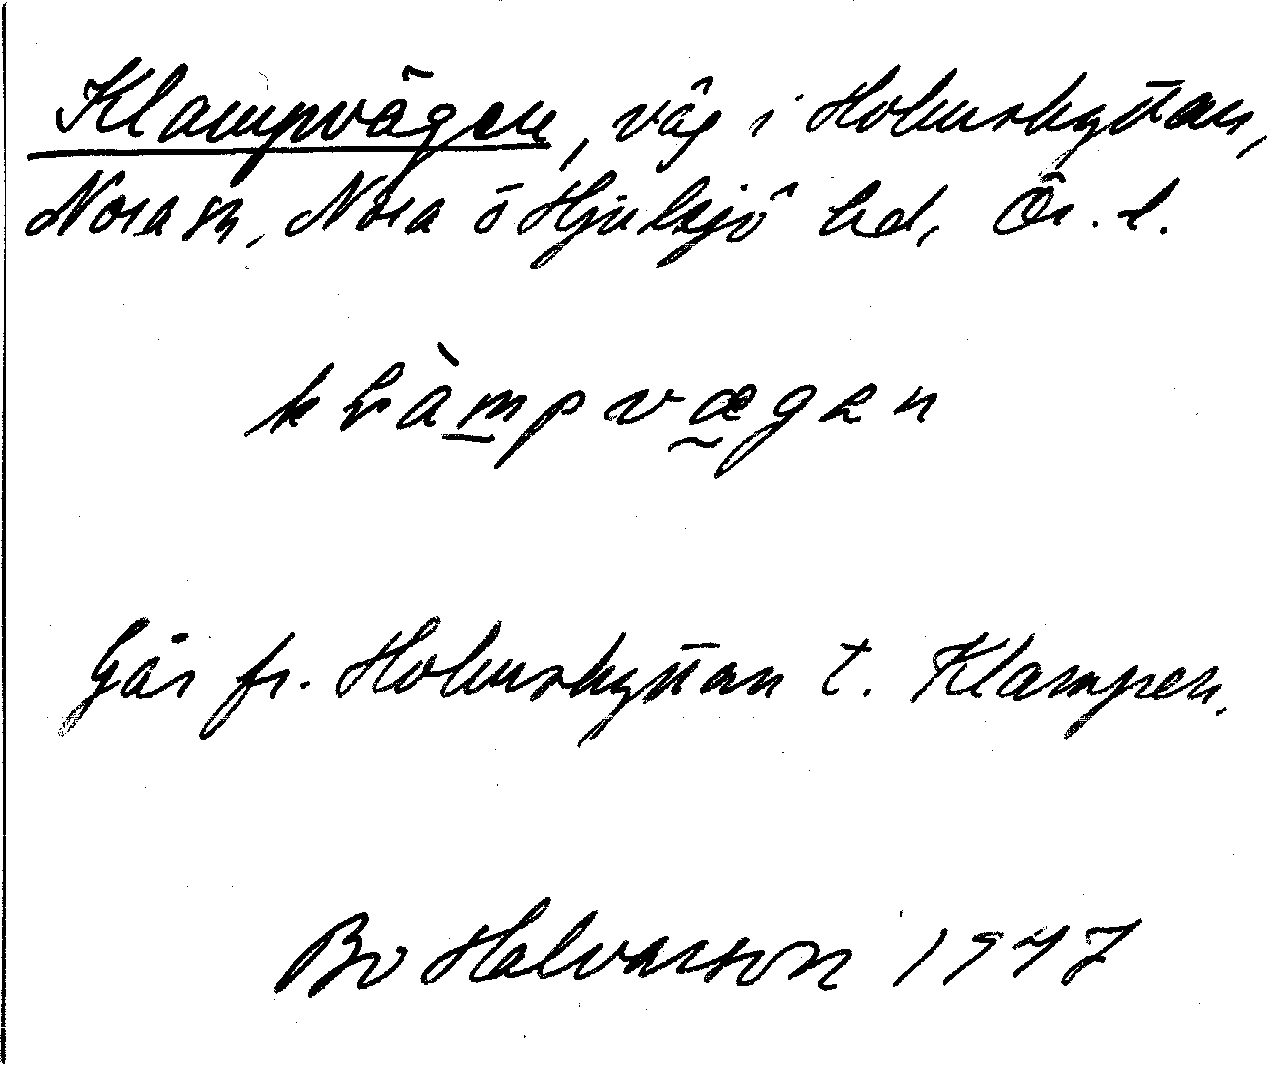 Klampvägen, väg i Holmshyttan,
Nora sn, Nora o Hjulsjö hd, Ör. l.
klàmpvægen
Går fr. Holmshyttan t. Klampen.
Bo Halvarson 1947